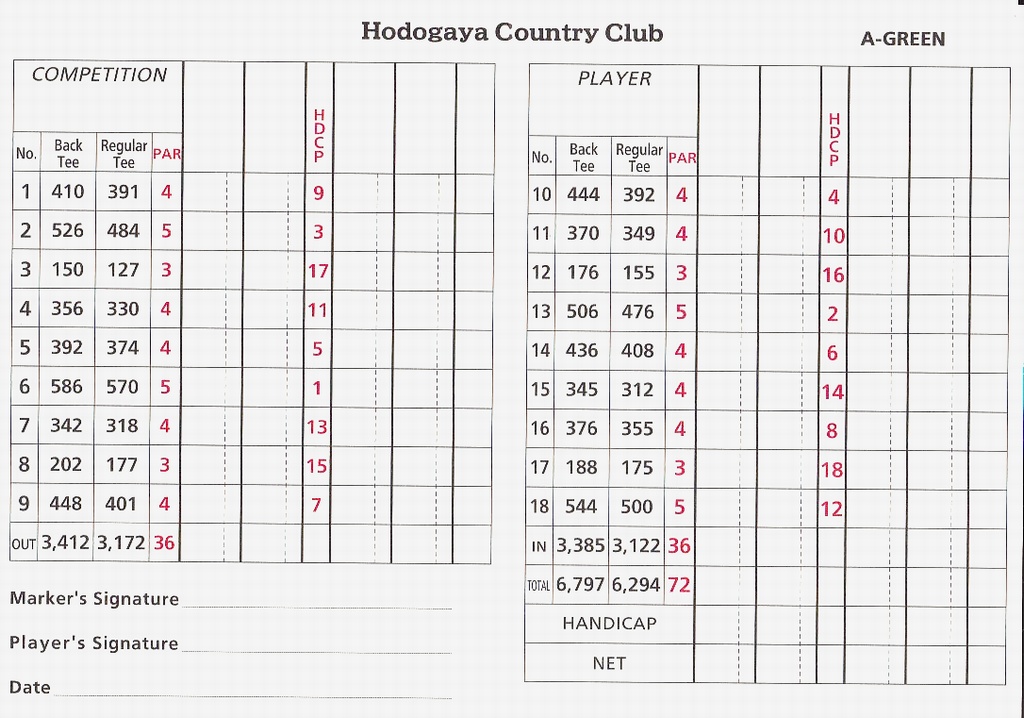 Hodogaya Country Club
A-GREEN
COMPETITION
HDCP
No. Back Tee Regular Tee PAR
1 410 391 4 9
2 526 484 5 3
3 150 127 3 17
4 356 330 4 11
5 392 374 4 5
6 586 570 5 1
7 342 318 4 13
8 202 177 3 15
9 448 401 4 7
OUT 3,412 3,172 36
Marker's Signature
Player's Signature
Date
PLAYER
HDCP
No. Back Tee Regular Tee PAR
10 444 392 4 4
11 370 349 4 10
12 176 155 3 16
13 506 476 5 2
14 436 408 4 6
15 345 312 4 14
16 376 355 4 8
17 188 175 3 18
18 544 500 5 12
IN 3,385 3,122 36
TOTAL 6,797 6,294 72
HANDICAP
NET